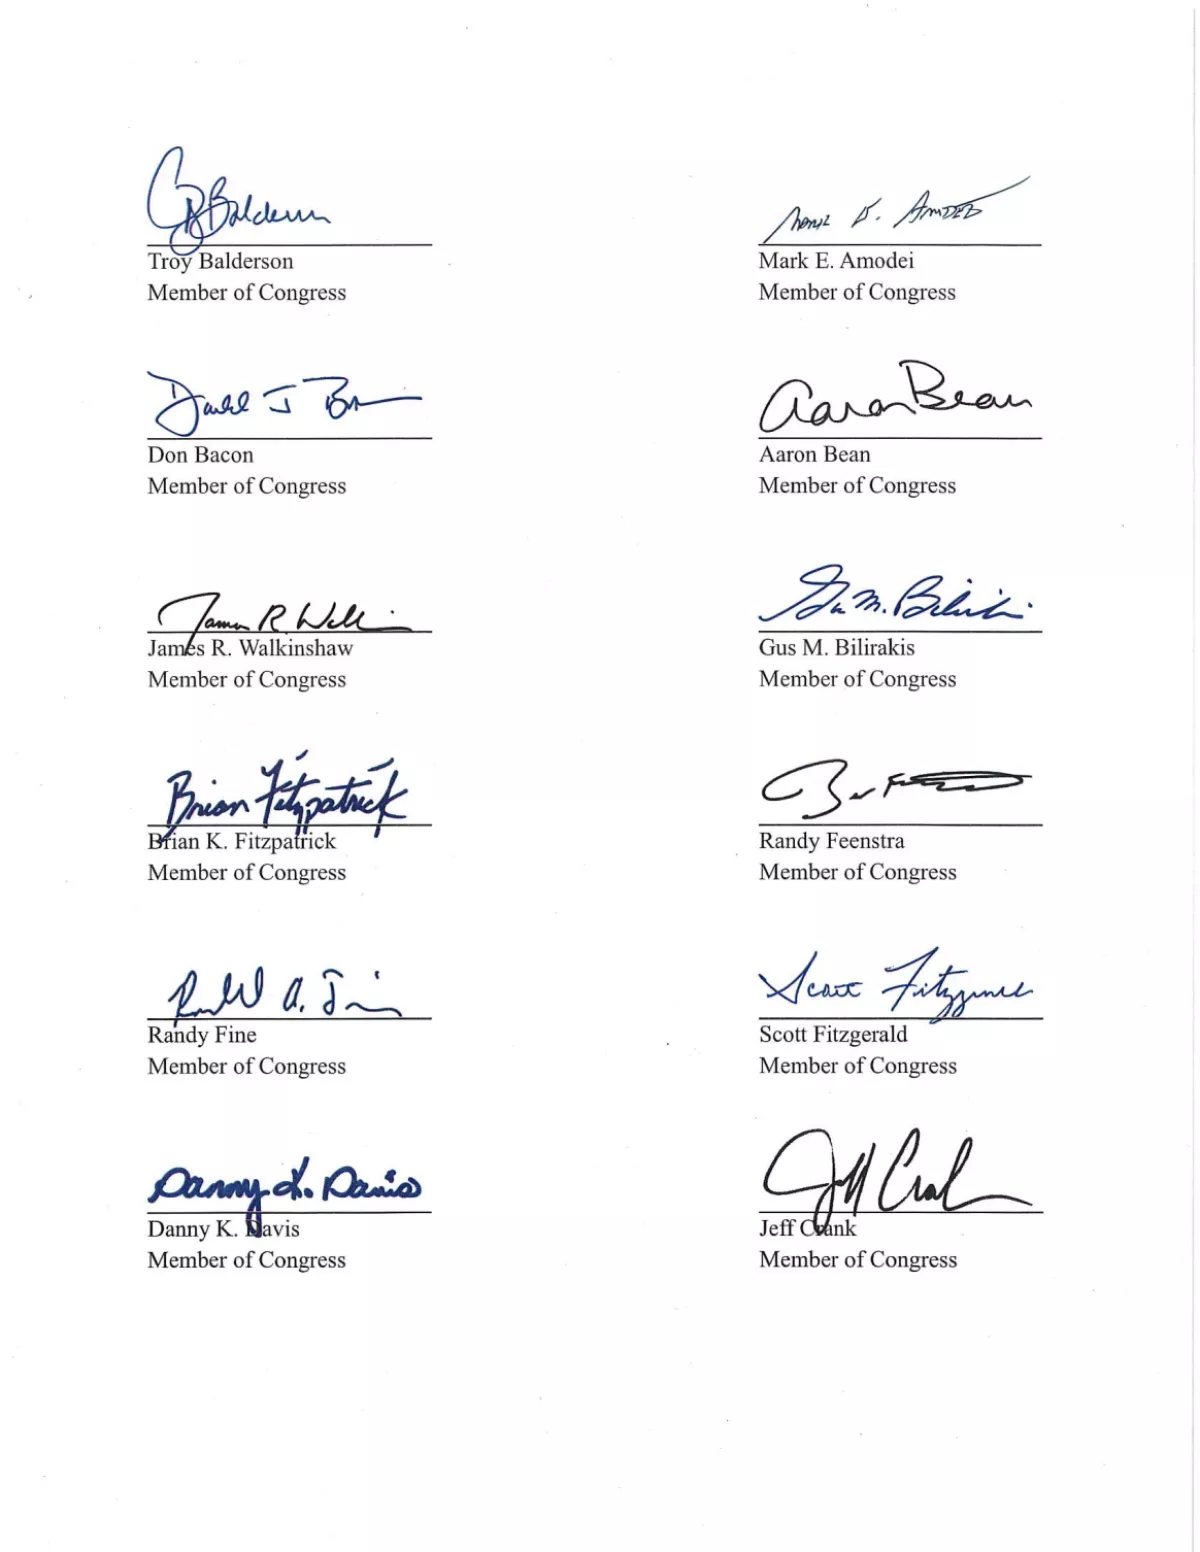 Balderson
Troy Balderson
Member of Congress
Mark E. Amodei
Mark E. Amodei
Member of Congress
Don Bacon
Member of Congress
Aaron Bean
Aaron Bean
Member of Congress
James R. Walkinshaw
Member of Congress
Gus M. Bilirakis
Gus M. Bilirakis
Member of Congress
Brian Fitzpatrick
Brian K. Fitzpatrick
Member of Congress
Randy Feenstra
Member of Congress
Randy Fine
Member of Congress
Scott Fitzgerald
Scott Fitzgerald
Member of Congress
Danny K. Davis
Danny K. Davis
Member of Congress
Jeff Crank
Jeff Crank
Member of Congress